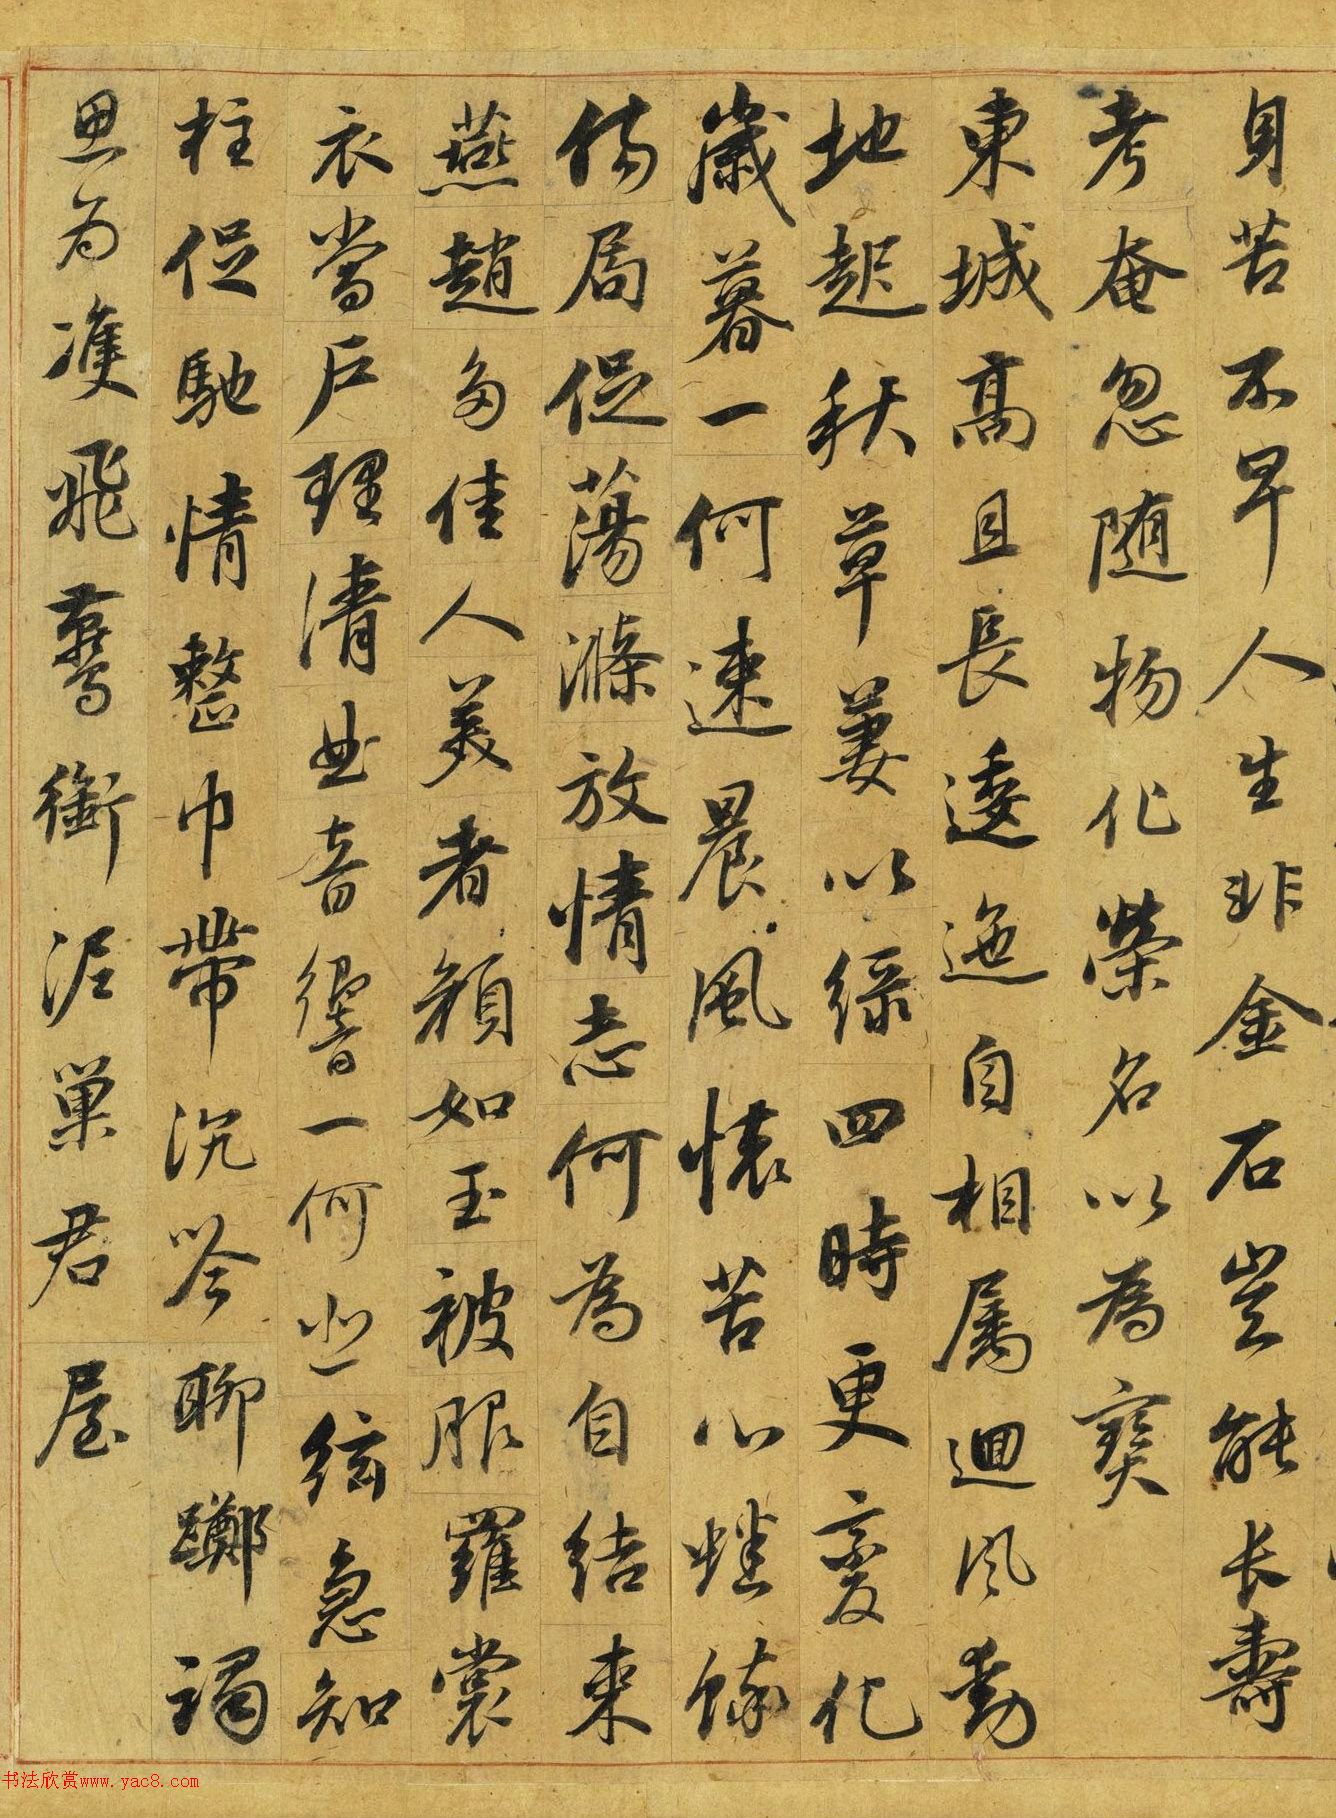 身苦不早人生非金石豈能長壽
考奄忽随物化榮名以為寶
東城高且長逶迤自相属迴風動
地起秋草萋以緑四時更變化
歲暮一何速晨風懷苦心蟋蟀
傷局促蕩滌放情志何為自結束
燕趙多佳人美者顔如玉被服羅裳
衣當戶理清曲音響一何悲絃急知
柱促馳情整巾帶沉吟聊躑躅
思為雙飛鷰銜泥巢君屋
书法欣赏www.yac8.com